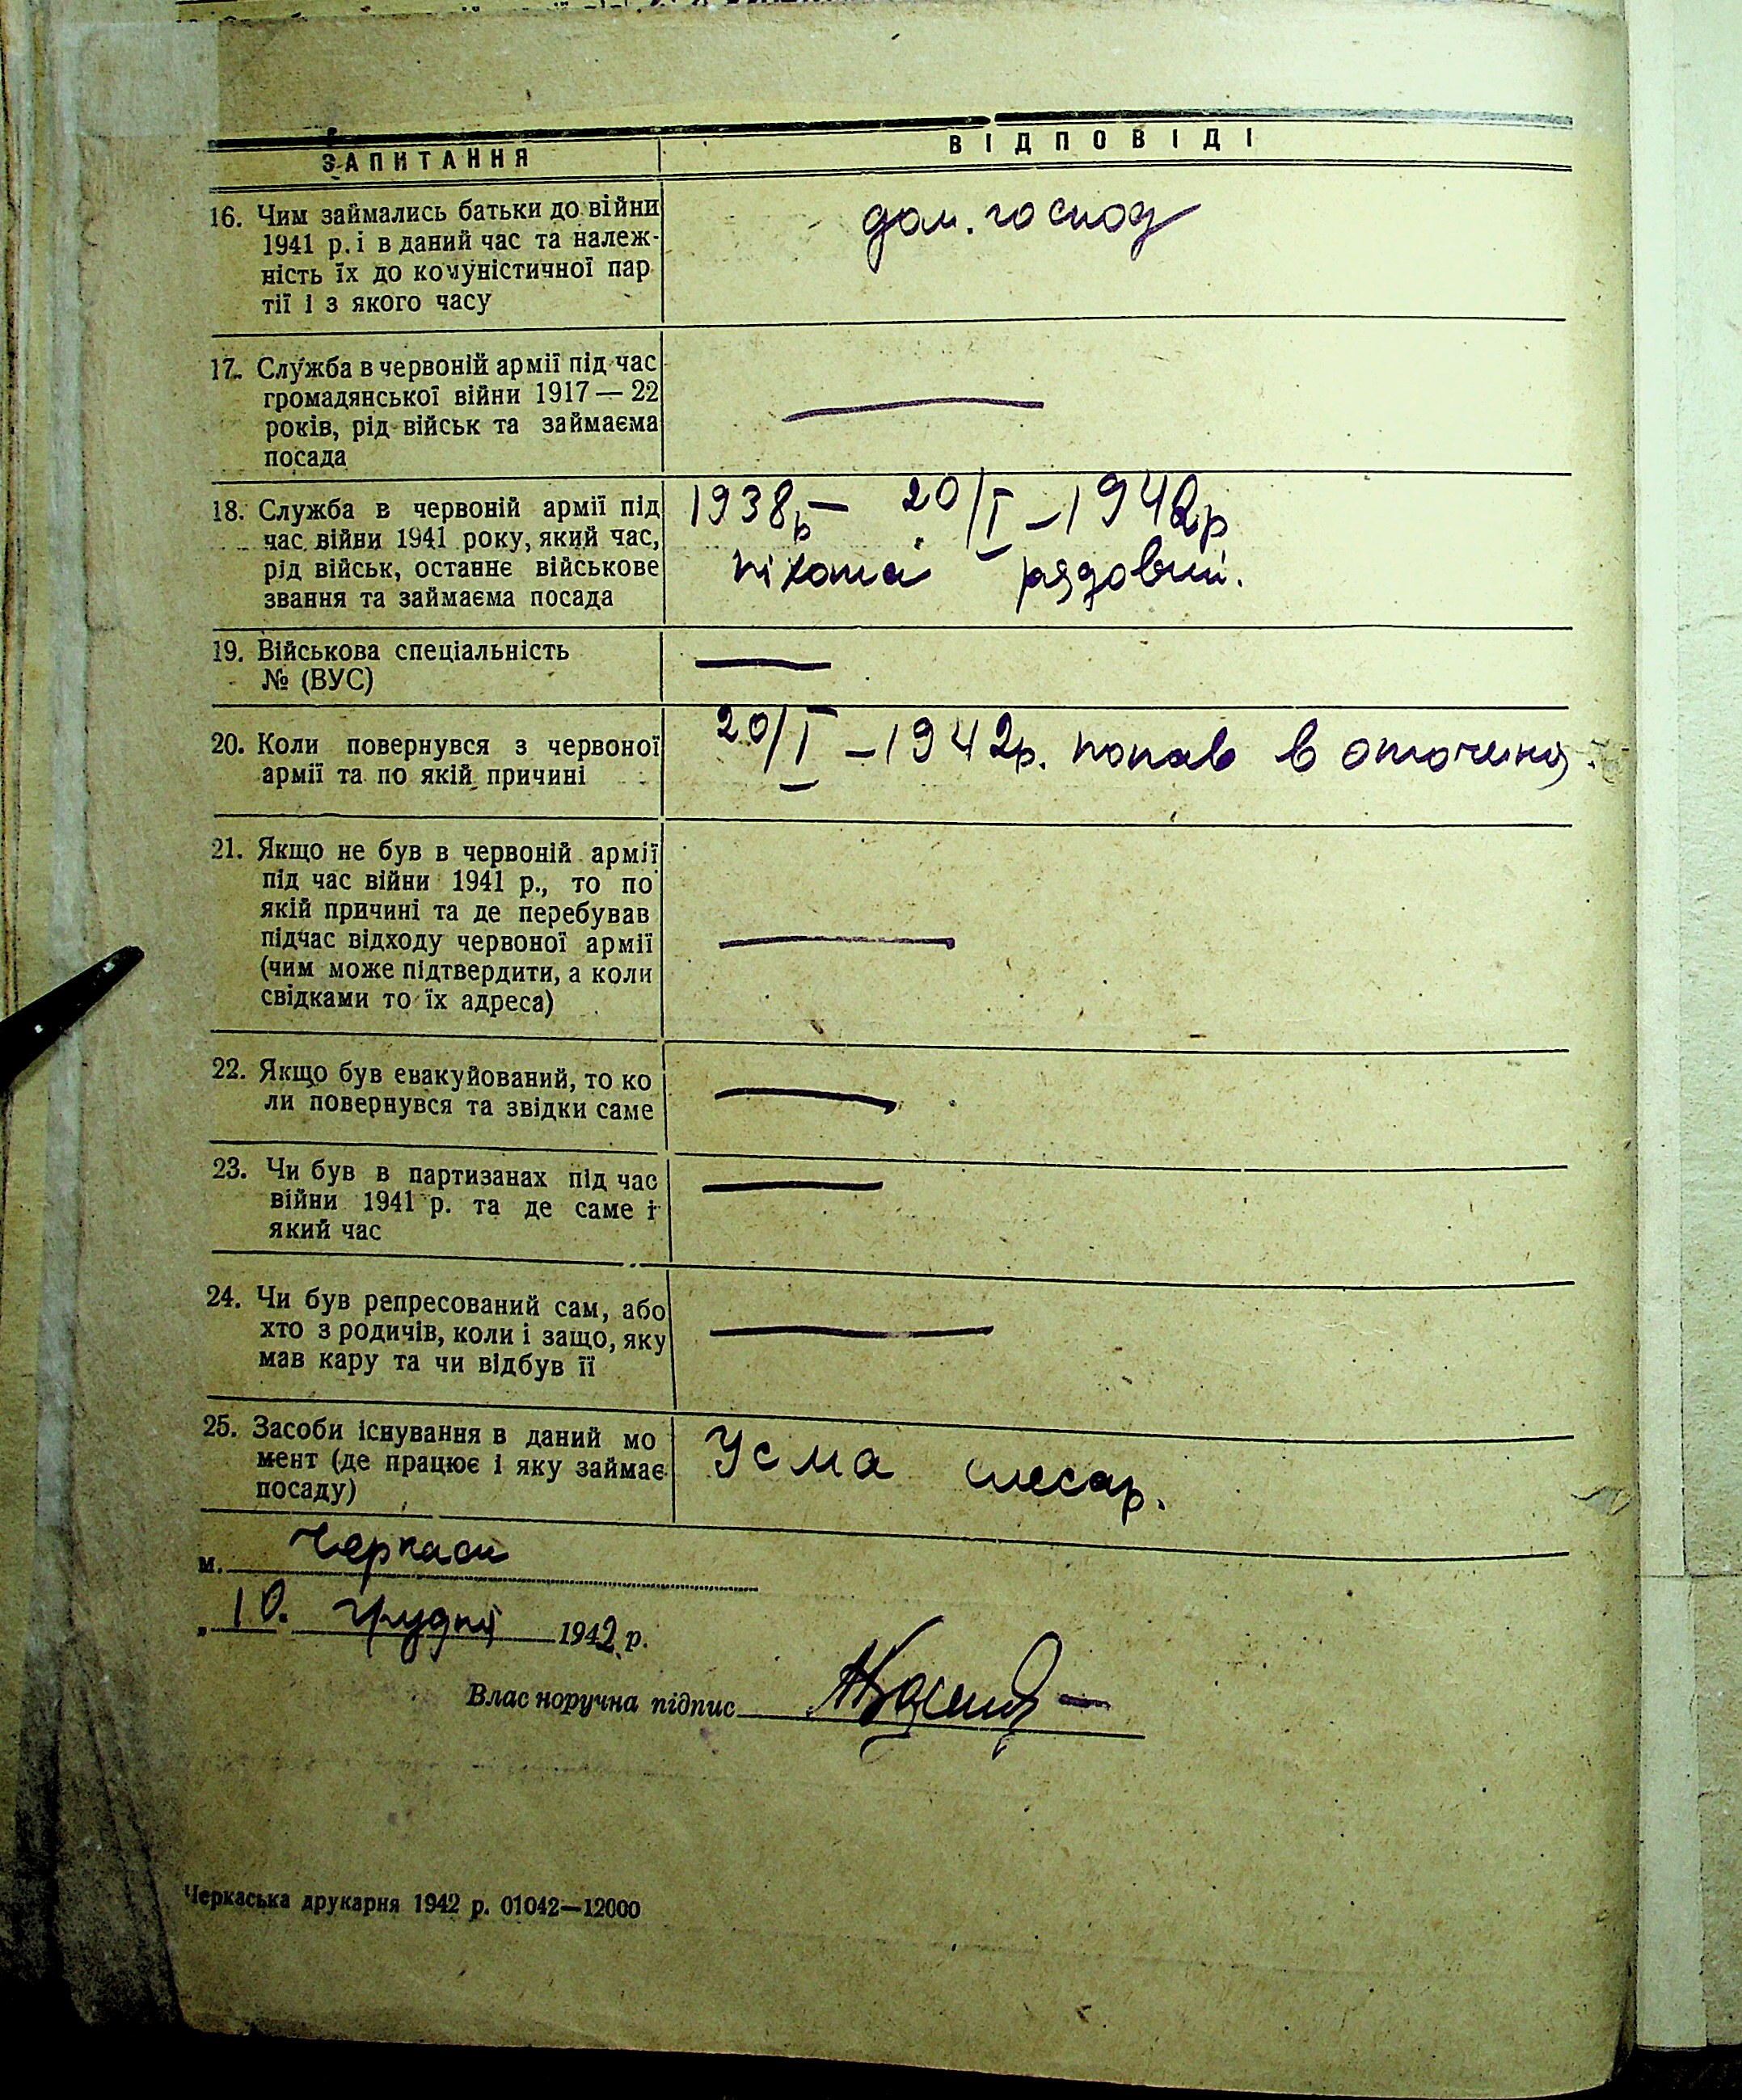 ЗАПИТАННЯ
ВІДПОВІДІ
16. Чим займались батьки до війни
1941 р. і в даний час та належ-
ність їх до комуністичної пар
тії і з якого часу
дом. господ
17. Служба в червоній армії під час
громадянської війни 1917 — 22
років, рід військ та займаєма
посада
18. Служба в червоній армії під
час війни 1941 року, який час,
рід військ, останнє військове
звання та займаєма посада
1938р — 20/I – 1942р
піхота рядовий.
19. Військова спеціальність
№ (ВУС)
20. Коли повернувся з червоної
армії та по якій причині
20/I – 1942р. попав в оточення.
21. Якщо не був в червоній армії
під час війни 1941 р., то по
якій причині та де перебував
підчас відходу червоної армії
(чим може підтвердити, а коли
свідками то їх адреса)
22. Якщо був евакуйований, то ко
ли повернувся та звідки саме
23. Чи був в партизанах під час
війни 1941 р. та де саме і
який час
24. Чи був репресований сам, або
хто з родичів, коли і защо, яку
мав кару та чи відбув її
25. Засоби існування в даний мо
мент (де працює і яку займає
посаду)
Усма слесар.
м. Черкаси
„ 10. грудня 1942 р.
Власноручна підпис
Черкаська друкарня 1942 р. 01042—12000